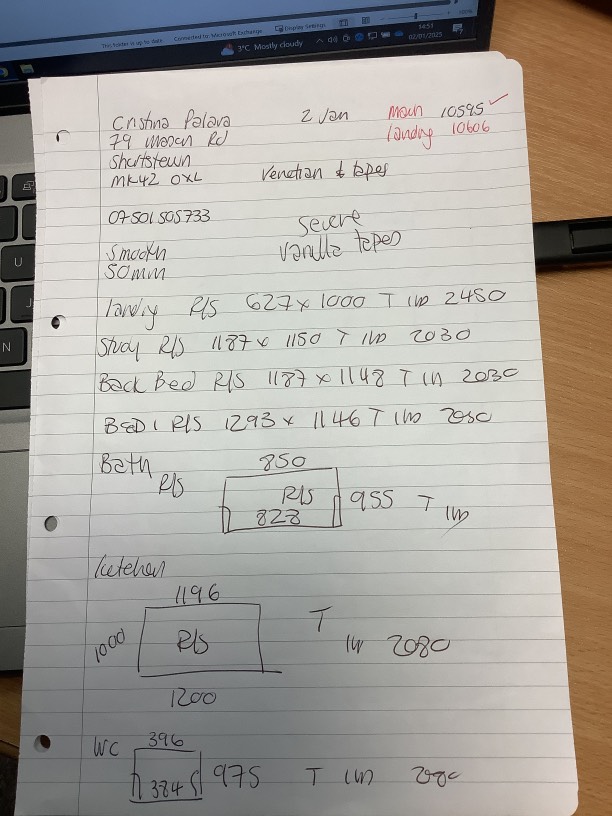 This folder is up to date. Connected to: Microsoft Exchange Display Settings
3°C Mostly cloudy 14:51
02/01/2025
Cristina Palava 2 Jan main 10595 ✓
79 Mason Rd landry 10606
Shortstown
MK42 0XL Venetian & tapes
07501505733
Severe
Smooth vanilla tapes
50mm
landry R/S 627 x 1000 T 2480
Study R/S 1187 x 1150 T 2030
Back Bed R/S 1187 x 1148 T 2030
BED 1 R/S 1293 x 1146 T
Bath 850
R/S R/S 955 T
828
kitchen
1196
1000 R/S T
2080
1200
WC 396
384 975 T
U
J
N